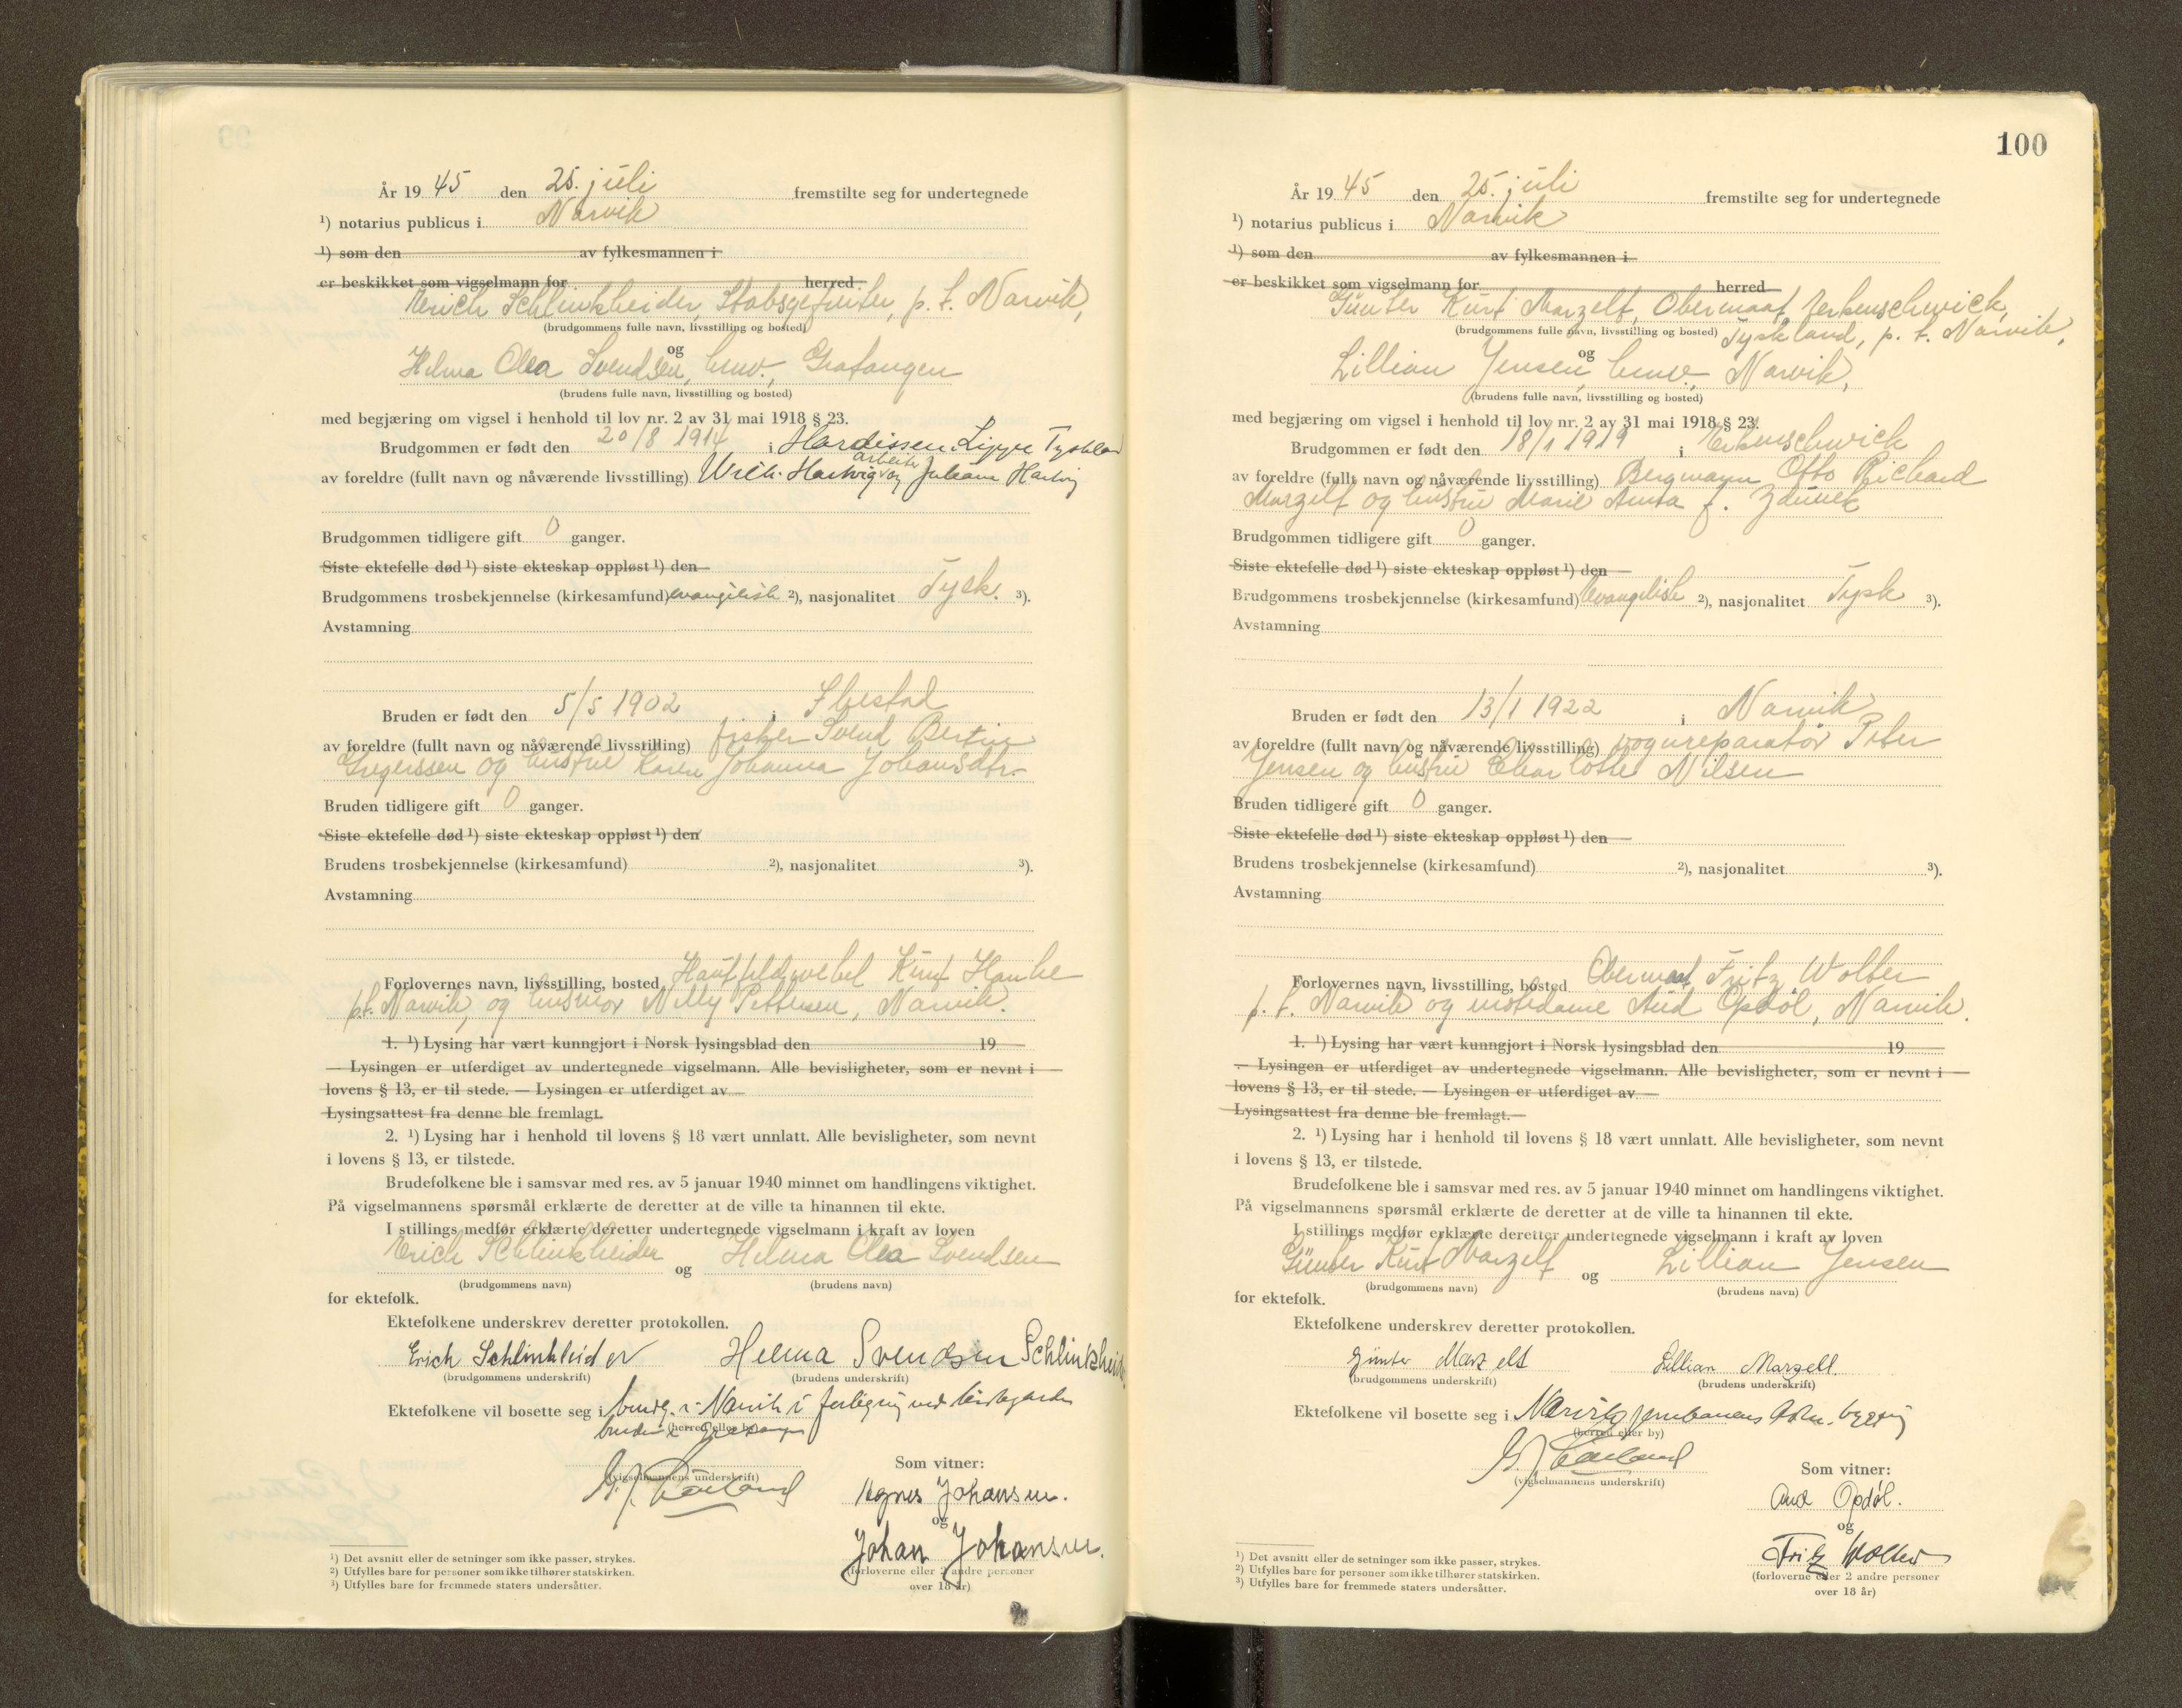 År 1945 den 25. juli fremstilte seg for undertegnede
¹) notarius publicus i Narvik
¹) som den av fylkesmannen i
er beskikket som vigselmann for herred
Erich Schlinkheider, Stabsgefreiter, p. t. Narvik,
(brudgommens fulle navn, livsstilling og bosted)
og
Helma Olea Svendsen, husv., Gratangen
(brudens fulle navn, livsstilling og bosted)
med begjæring om vigsel i henhold til lov nr. 2 av 31 mai 1918 § 23.
Brudgommen er født den 20/8 1914 i Hardissen Lippe Tyskland
av foreldre (fullt navn og nåværende livsstilling) Wilh. Hartwig arbeider og Juliane Hartwig
Brudgommen tidligere gift 0 ganger.
Siste ektefelle død ¹) siste ekteskap oppløst ¹) den
Brudgommens trosbekjennelse (kirkesamfund) evangelisk ²), nasjonalitet Tysk. ³).
Avstamning
Bruden er født den 5/5 1902 i Ibestad
av foreldre (fullt navn og nåværende livsstilling) fisker Svend Bertin
Gregerssen og hustru Karen Johanna Johansdtr.
Bruden tidligere gift 0 ganger.
Siste ektefelle død ¹) siste ekteskap oppløst ¹) den
Brudens trosbekjennelse (kirkesamfund) ²), nasjonalitet ³).
Avstamning
Forlovernes navn, livsstilling, bosted Hauptfeldwebel Kurt Hanke
p.t. Narvik, og husmor Nelly Pettersen, Narvik.
1. ¹) Lysing har vært kunngjort i Norsk lysingsblad den 19
— Lysingen er utferdiget av undertegnede vigselmann. Alle bevisligheter, som er nevnt i
lovens § 13, er til stede. — Lysingen er utferdiget av
Lysingsattest fra denne ble fremlagt.
2. ¹) Lysing har i henhold til lovens § 18 vært unnlatt. Alle bevisligheter, som nevnt
i lovens § 13, er tilstede.
Brudefolkene ble i samsvar med res. av 5 januar 1940 minnet om handlingens viktighet.
På vigselmannens spørsmål erklærte de deretter at de ville ta hinannen til ekte.
I stillings medfør erklærte deretter undertegnede vigselmann i kraft av loven
Erich Schlinkheider og Helma Olea Svendsen
(brudgommens navn) (brudens navn)
for ektefolk.
Ektefolkene underskrev deretter protokollen.
Erich Schlinkheider Helma Svendsen Schlinkheider
(brudgommens underskrift) (brudens underskrift)
Ektefolkene vil bosette seg i brudg. i Narvik i
bruden i Gratangen
(herred eller by)
(vigselmannens underskrift)
Som vitner:
Agnes Johansen.
og
Johan Johansen.
(forloverne eller 2 andre personer
over 18 år)
¹) Det avsnitt eller de setninger som ikke passer, strykes.
²) Utfylles bare for personer som ikke tilhører statskirken.
³) Utfylles bare for fremmede staters undersåtter.
100
År 1945 den 25. juli fremstilte seg for undertegnede
¹) notarius publicus i Narvik
¹) som den av fylkesmannen i
er beskikket som vigselmann for herred
Günter Kurt Marzelt, Obermaat, Erkenschwick,
(brudgommens fulle navn, livsstilling og bosted) Tyskland, p. t. Narvik,
og
Lillian Jensen, husv., Narvik,
(brudens fulle navn, livsstilling og bosted)
med begjæring om vigsel i henhold til lov nr. 2 av 31 mai 1918 § 23.
Brudgommen er født den 18/1 1919 i Erkenschwick
av foreldre (fullt navn og nåværende livsstilling) Bergmann Otto Richard
Marzelt og hustru Marie Anna f.
Brudgommen tidligere gift 0 ganger.
Siste ektefelle død ¹) siste ekteskap oppløst ¹) den
Brudgommens trosbekjennelse (kirkesamfund) evangelisk ²), nasjonalitet Tysk ³).
Avstamning
Bruden er født den 13/1 1922 i Narvik
av foreldre (fullt navn og nåværende livsstilling) vognreparatør Peter
Jensen og hustru Charlotte Nilsen
Bruden tidligere gift 0 ganger.
Siste ektefelle død ¹) siste ekteskap oppløst ¹) den
Brudens trosbekjennelse (kirkesamfund) ²), nasjonalitet ³).
Avstamning
Forlovernes navn, livsstilling, bosted Obermaat Fritz Wolter
p. t. Narvik og motedame Aud Opdøl, Narvik.
1. ¹) Lysing har vært kunngjort i Norsk lysingsblad den 19
— Lysingen er utferdiget av undertegnede vigselmann. Alle bevisligheter, som er nevnt i
lovens § 13, er til stede. — Lysingen er utferdiget av
Lysingsattest fra denne ble fremlagt.
2. ¹) Lysing har i henhold til lovens § 18 vært unnlatt. Alle bevisligheter, som nevnt
i lovens § 13, er tilstede.
Brudefolkene ble i samsvar med res. av 5 januar 1940 minnet om handlingens viktighet.
På vigselmannens spørsmål erklærte de deretter at de ville ta hinannen til ekte.
I stillings medfør erklærte deretter undertegnede vigselmann i kraft av loven
Günter Kurt Marzelt og Lillian Jensen
(brudgommens navn) (brudens navn)
for ektefolk.
Ektefolkene underskrev deretter protokollen.
Günter Marzelt Lillian Marzell.
(brudgommens underskrift) (brudens underskrift)
Ektefolkene vil bosette seg i Narvik, jernbanens
(herred eller by)
(vigselmannens underskrift)
Som vitner:
Aud Opdøl.
og
Fritz Wolter
(forloverne eller 2 andre personer
over 18 år)
¹) Det avsnitt eller de setninger som ikke passer, strykes.
²) Utfylles bare for personer som ikke tilhører statskirken.
³) Utfylles bare for fremmede staters undersåtter.